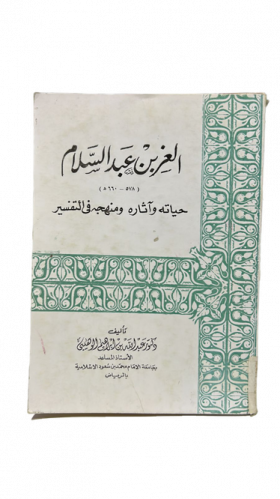 العز بن عبد السلام
(٥٧٨ - ٦٦٠ ه)
حياته وآثاره ومنهجه في التفسير
تأليف
دكتور عبد الله بن إبراهيم الوهيبي
الأستاذ المساعد
بجامعة الإمام محمد بن سعود الإسلامية
بالرياض